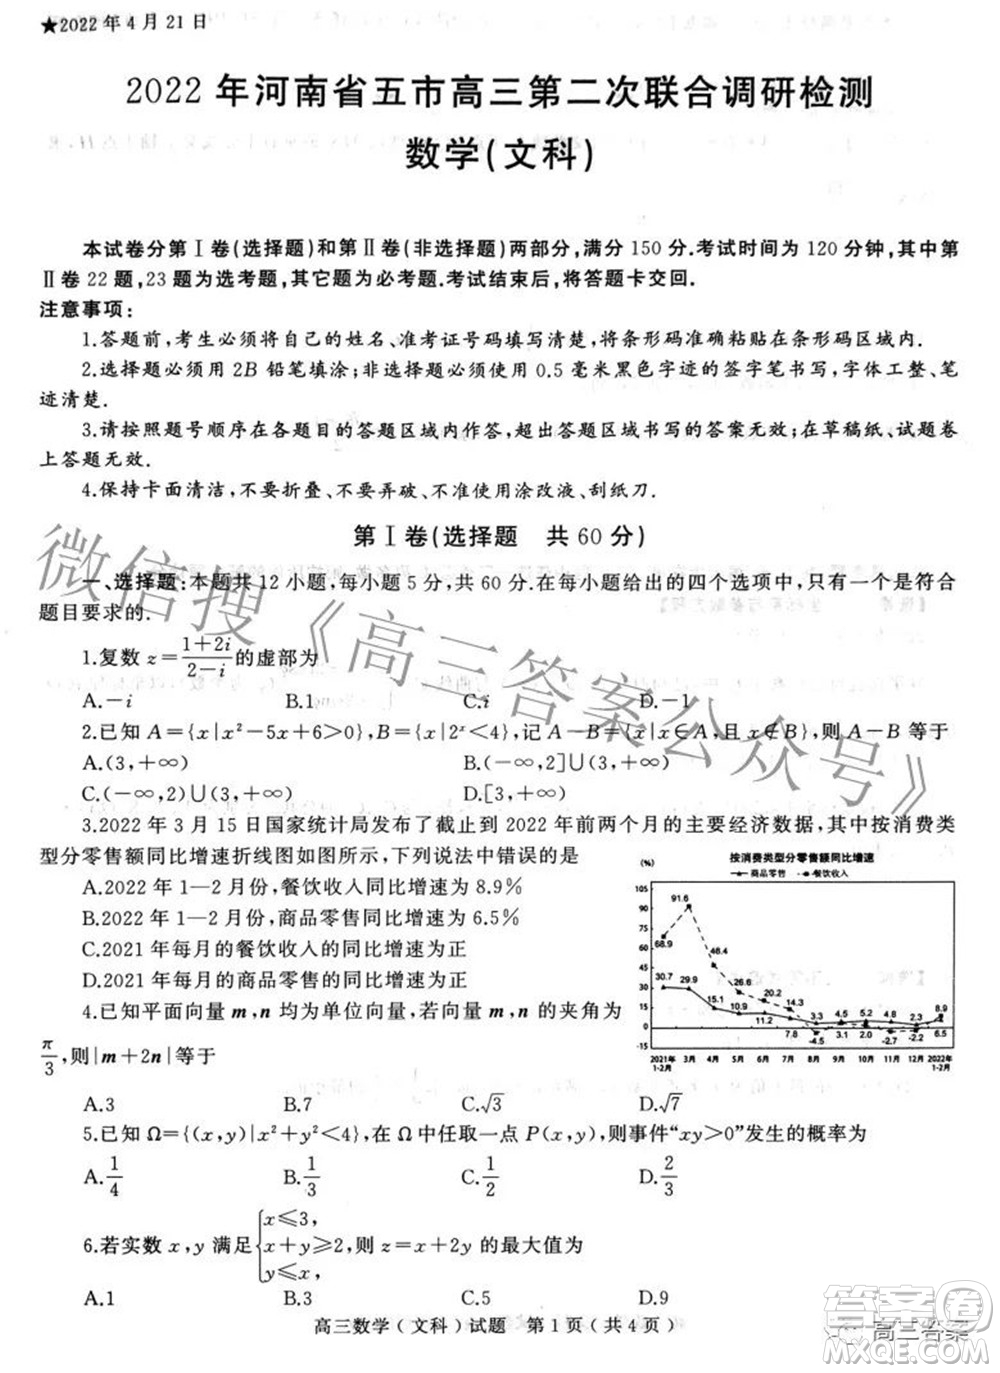 ★2022年4月21日
2022年河南省五市高三第二次联合调研检测
数学(文科)
本试卷分第Ⅰ卷(选择题)和第Ⅱ卷(非选择题)两部分,满分150分.考试时间为120分钟,其中第
Ⅱ卷22题,23题为选考题,其它题为必考题.考试结束后,将答题卡交回.
注意事项:
1.答题前,考生必须将自己的姓名、准考证号码填写清楚,将条形码准确粘贴在条形码区域内.
2.选择题必须用2B铅笔填涂;非选择题必须使用0.5毫米黑色字迹的签字笔书写,字体工整、笔
迹清楚.
3.请按照题号顺序在各题目的答题区域内作答,超出答题区域书写的答案无效;在草稿纸、试题卷
上答题无效.
4.保持卡面清洁,不要折叠、不要弄破、不准使用涂改液、刮纸刀.
第Ⅰ卷(选择题 共60分)
一、选择题:本题共12小题,每小题5分,共60分.在每小题给出的四个选项中,只有一个是符合
题目要求的.
1.复数z=(1+2i)/(2-i)的虚部为
A.-i B.1 C.i D.-1
2.已知A={x|x²-5x+6>0},B={x|2ˣ<4},记A-B={x|x∈A,且x∉B},则A-B等于
A.(3,+∞) B.(-∞,2]∪(3,+∞)
C.(-∞,2)∪(3,+∞) D.[3,+∞)
3.2022年3月15日国家统计局发布了截止到2022年前两个月的主要经济数据,其中按消费类
型分零售额同比增速折线图如图所示,下列说法中错误的是
A.2022年1—2月份,餐饮收入同比增速为8.9%
B.2022年1—2月份,商品零售同比增速为6.5%
C.2021年每月的餐饮收入的同比增速为正
D.2021年每月的商品零售的同比增速为正
按消费类型分零售额同比增速
(%)
商品零售 餐饮收入
105
90
75
60
45
30
15
0
-15
91.6
68.9
46.4
30.7 29.9 26.6 20.2 14.3
15.1 10.9 11.2 7.8 3.3 4.5 5.2 4.8 2.3 8.9
-4.5 3.1 2.0 -2.7 -2.2 6.5
2021年 3月 4月 5月 6月 7月 8月 9月 10月 11月 12月 2022年
1-2月 1-2月
4.已知平面向量m,n均为单位向量,若向量m,n的夹角为
π/3,则|m+2n|等于
A.3 B.7 C.√3 D.√7
5.已知Ω={(x,y)|x²+y²<4},在Ω中任取一点P(x,y),则事件“xy>0”发生的概率为
A.1/4 B.1/3 C.1/2 D.2/3
6.若实数x,y满足{x≤3, x+y≥2, y≤x, 则z=x+2y的最大值为
A.1 B.3 C.5 D.9
高三数学(文科)试题 第1页(共4页)
微信搜《高三答案公众号》
答案卷
高三答案
MXQE.COM